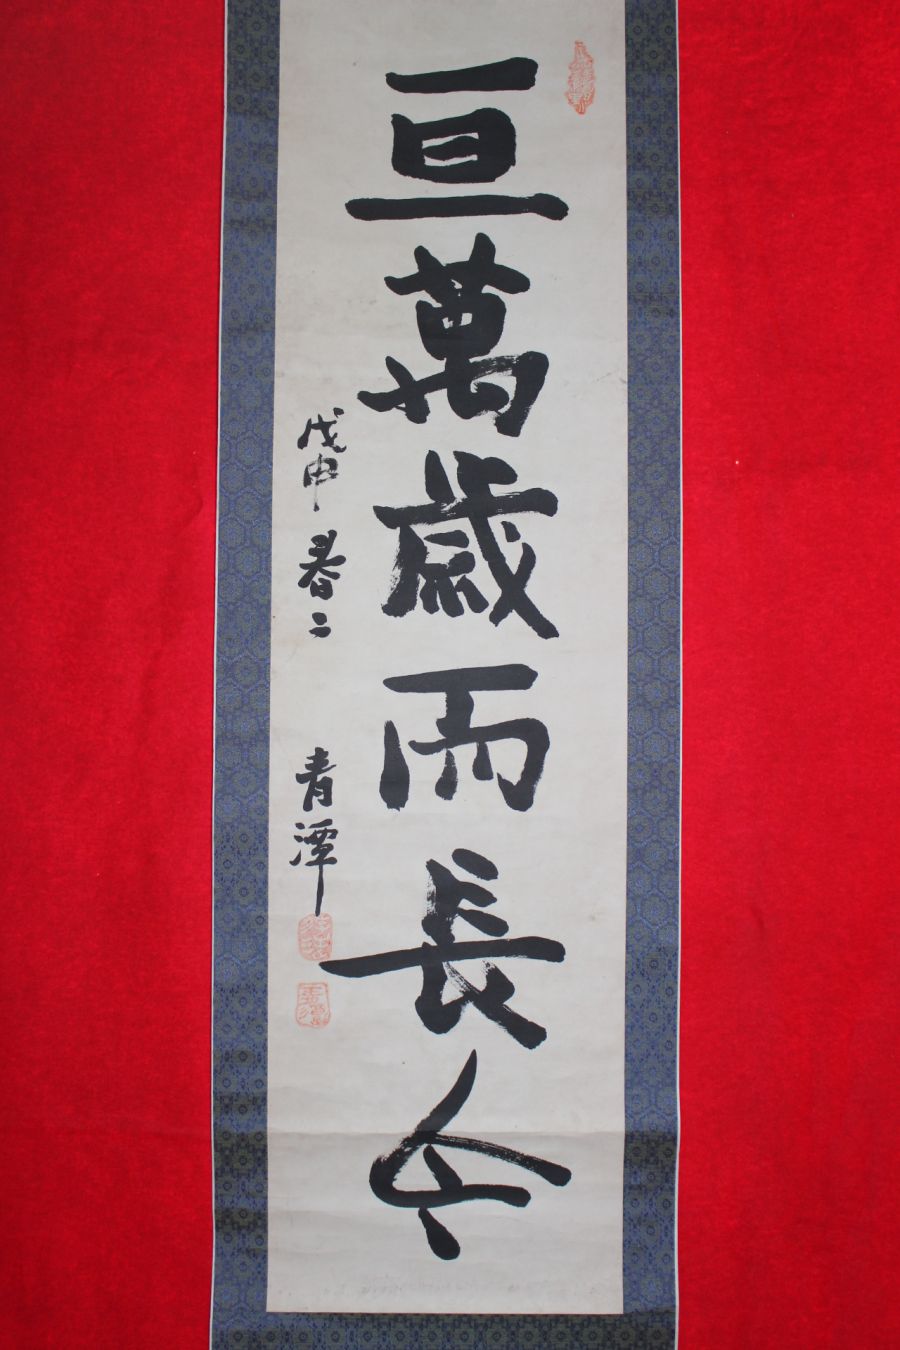 亘萬歲而長今
戊申春二
青潭